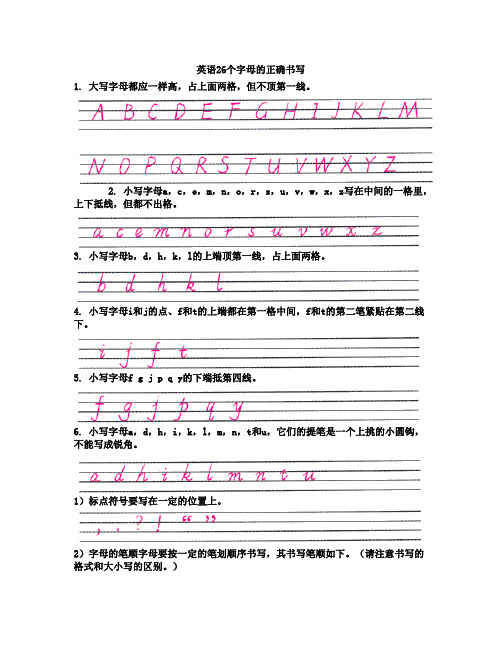 英语26个字母的正确书写
1. 大写字母都应一样高，占上面两格，但不顶第一线。
A B C D E F G H I J K L M
N O P Q R S T U V W X Y Z
2. 小写字母a，c，e，m，n，o，r，s，u，v，w，x，z写在中间的一格里，
上下抵线，但都不出格。
a c e m n o r s u v w x z
3. 小写字母b，d，h，k，l的上端顶第一线，占上面两格。
b d h k l
4. 小写字母i和j的点、f和t的上端都在第一格中间，f和t的第二笔紧贴在第二线
下。
i j f t
5. 小写字母f g j p q y的下端抵第四线。
f g j p q y
6. 小写字母a，d，h，i，k，l，m，n，t和u，它们的提笔是一个上挑的小圆钩，
不能写成锐角。
a d h i k l m n t u
1）标点符号要写在一定的位置上。
, . ? ! “ ”
2）字母的笔顺字母要按一定的笔划顺序书写，其书写笔顺如下。（请注意书写的
格式和大小写的区别。）